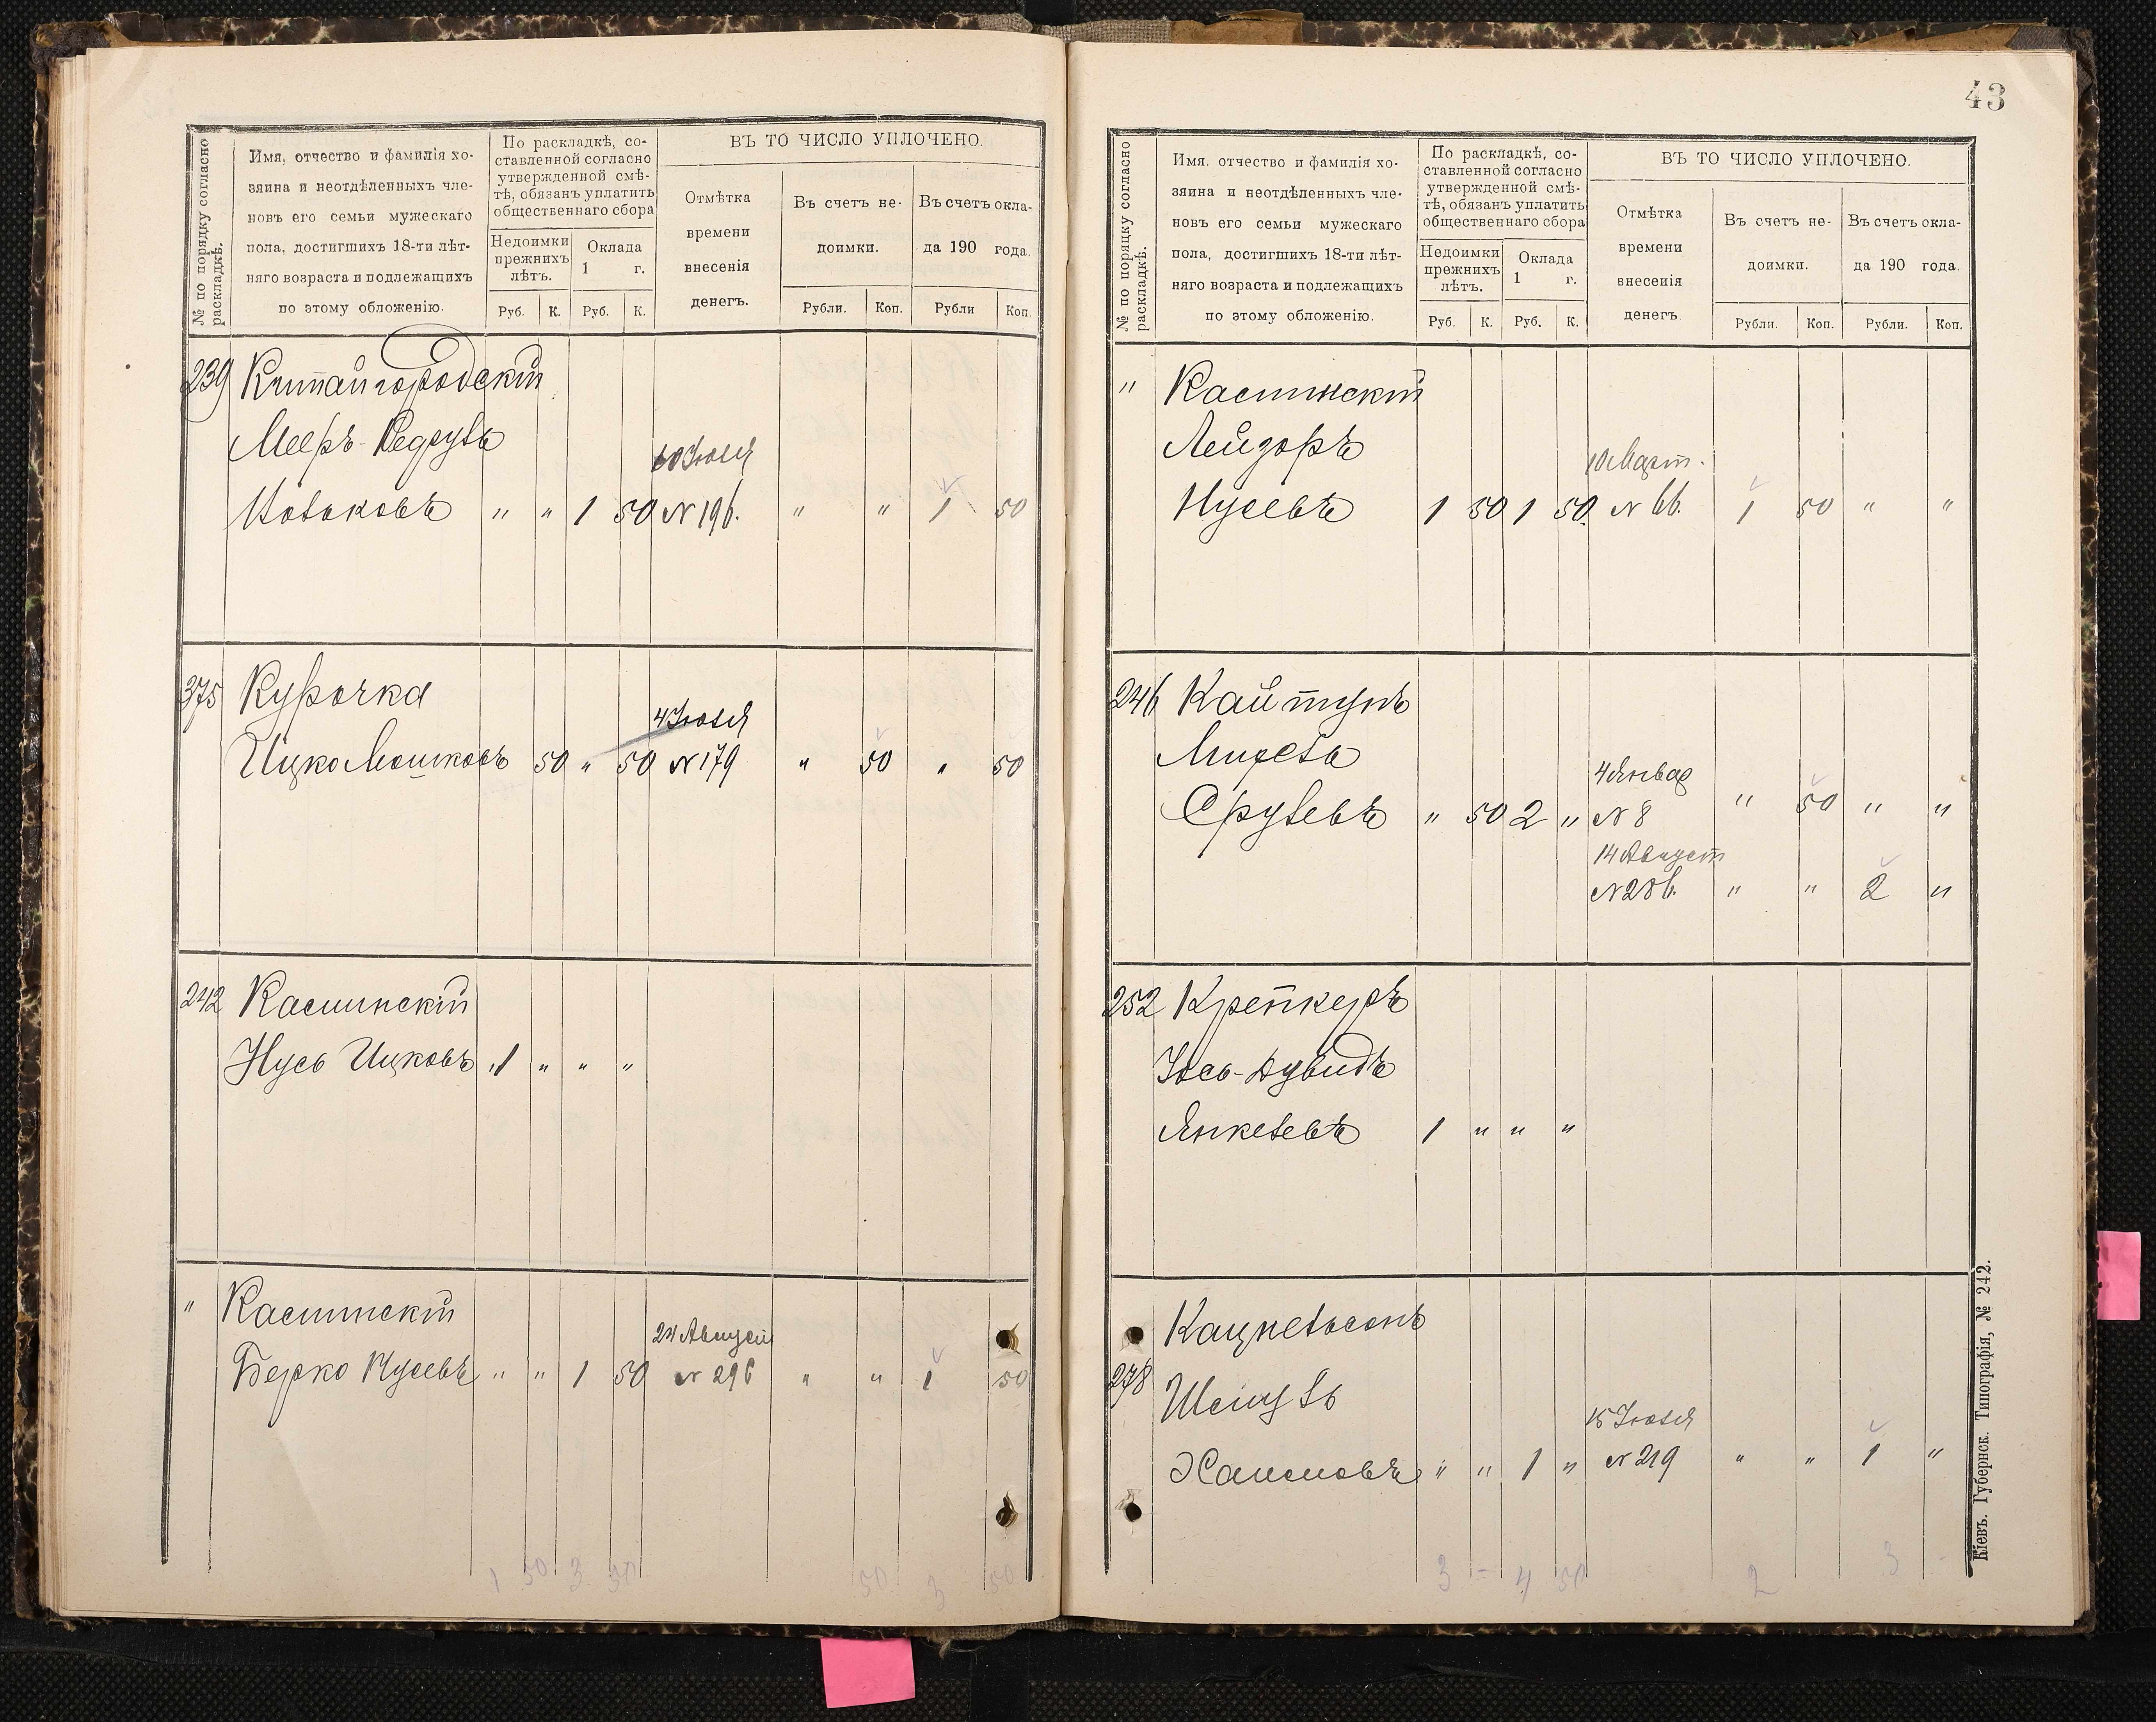 № по порядку согласно раскладкѣ.
Имя, отчество и фамилія хо-
зяина и неотдѣленныхъ чле-
новъ его семьи мужескаго
пола, достигшихъ 18-ти лѣт-
няго возраста и подлежащихъ
по этому обложенію.
По раскладкѣ, со-
ставленной согласно
утвержденной смѣ-
тѣ, обязанъ уплатить
общественнаго сбора
Недоимки
прежнихъ
лѣтъ.
Оклада
1 г.
Руб. К. Руб. К.
ВЪ ТО ЧИСЛО УПЛОЧЕНО.
Отмѣтка
времени
внесенія
денегъ.
Въ счетъ не-
доимки.
Въ счетъ окла-
да 190 года.
Рубли. Коп. Рубли Коп.
239 Китайгородскій
Мееръ-
10 Іюля
" " 1 50 N 196. " " 1 50
375 Курочка
4 Іюля
Ицко Мошковъ 50 " 50 N 179 " 50 " 50
242 Касинскій
Нусь Ицковъ 1 " " "
" Касинскій
24 Август
Берко Нусевъ " " 1 50 N 296 " " 1 50
1 50 3 50 50 3 50
43
№ по порядку согласно раскладкѣ.
Имя, отчество и фамилія хо-
зяина и неотдѣленныхъ чле-
новъ его семьи мужескаго
пола, достигшихъ 18-ти лѣт-
няго возраста и подлежащихъ
по этому обложенію.
По раскладкѣ, со-
ставленной согласно
утвержденной смѣ-
тѣ, обязанъ уплатить
общественнаго сбора
Недоимки
прежнихъ
лѣтъ.
Оклада
1 г.
Руб. К. Руб. К.
ВЪ ТО ЧИСЛО УПЛОЧЕНО.
Отмѣтка
времени
внесенія
денегъ.
Въ счетъ не-
доимки.
Въ счетъ окла-
да 190 года.
Рубли. Коп. Рубли. Коп.
" Касинскій
Лейзоръ
10 Март.
Нусевъ 1 50 1 50 N 66. 1 50 " "
246 Кайтунъ
4 Января
Срулевъ " 50 2 " N 8 " 50 " "
14 Август
N 286. " " 2 "
252 Крепкеръ
Іось-Дувидъ
Янкелевъ 1 " " "
Кацнельсонъ
278
Шмуль
15 Іюля
Хаимовъ " " 1 " N 219 " " 1 "
3 - 4 50 2 3 -
Кіевъ. Губернск. Типографія, № 242.